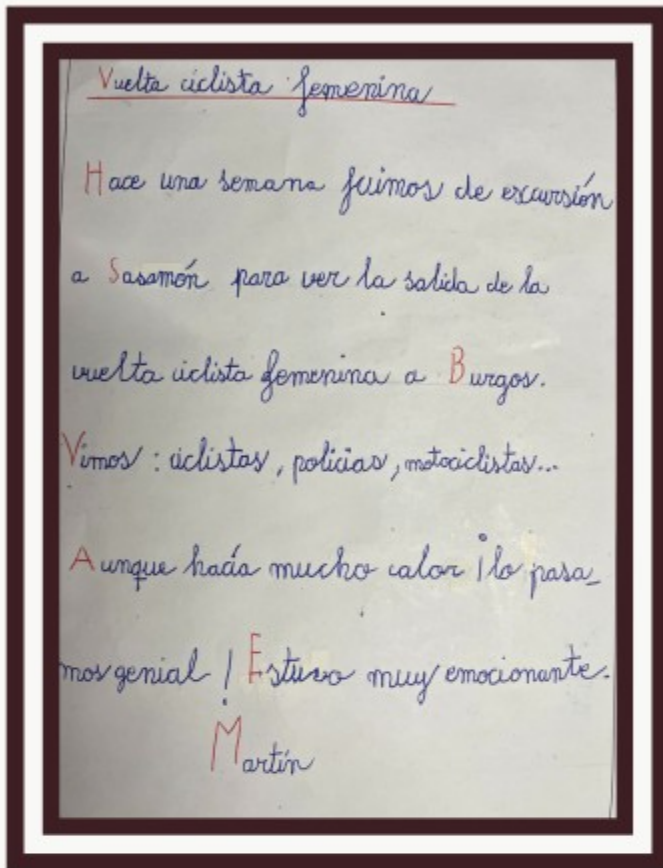 Vuelta ciclista femenina
Hace una semana fuimos de excursión
a Sasamón para ver la salida de la
vuelta ciclista femenina a Burgos.
Vimos : ciclistas, policias, motociclistas...
Aunque hacía mucho calor ¡lo pasa_
mos genial! Estuvo muy emocionante.
Martín